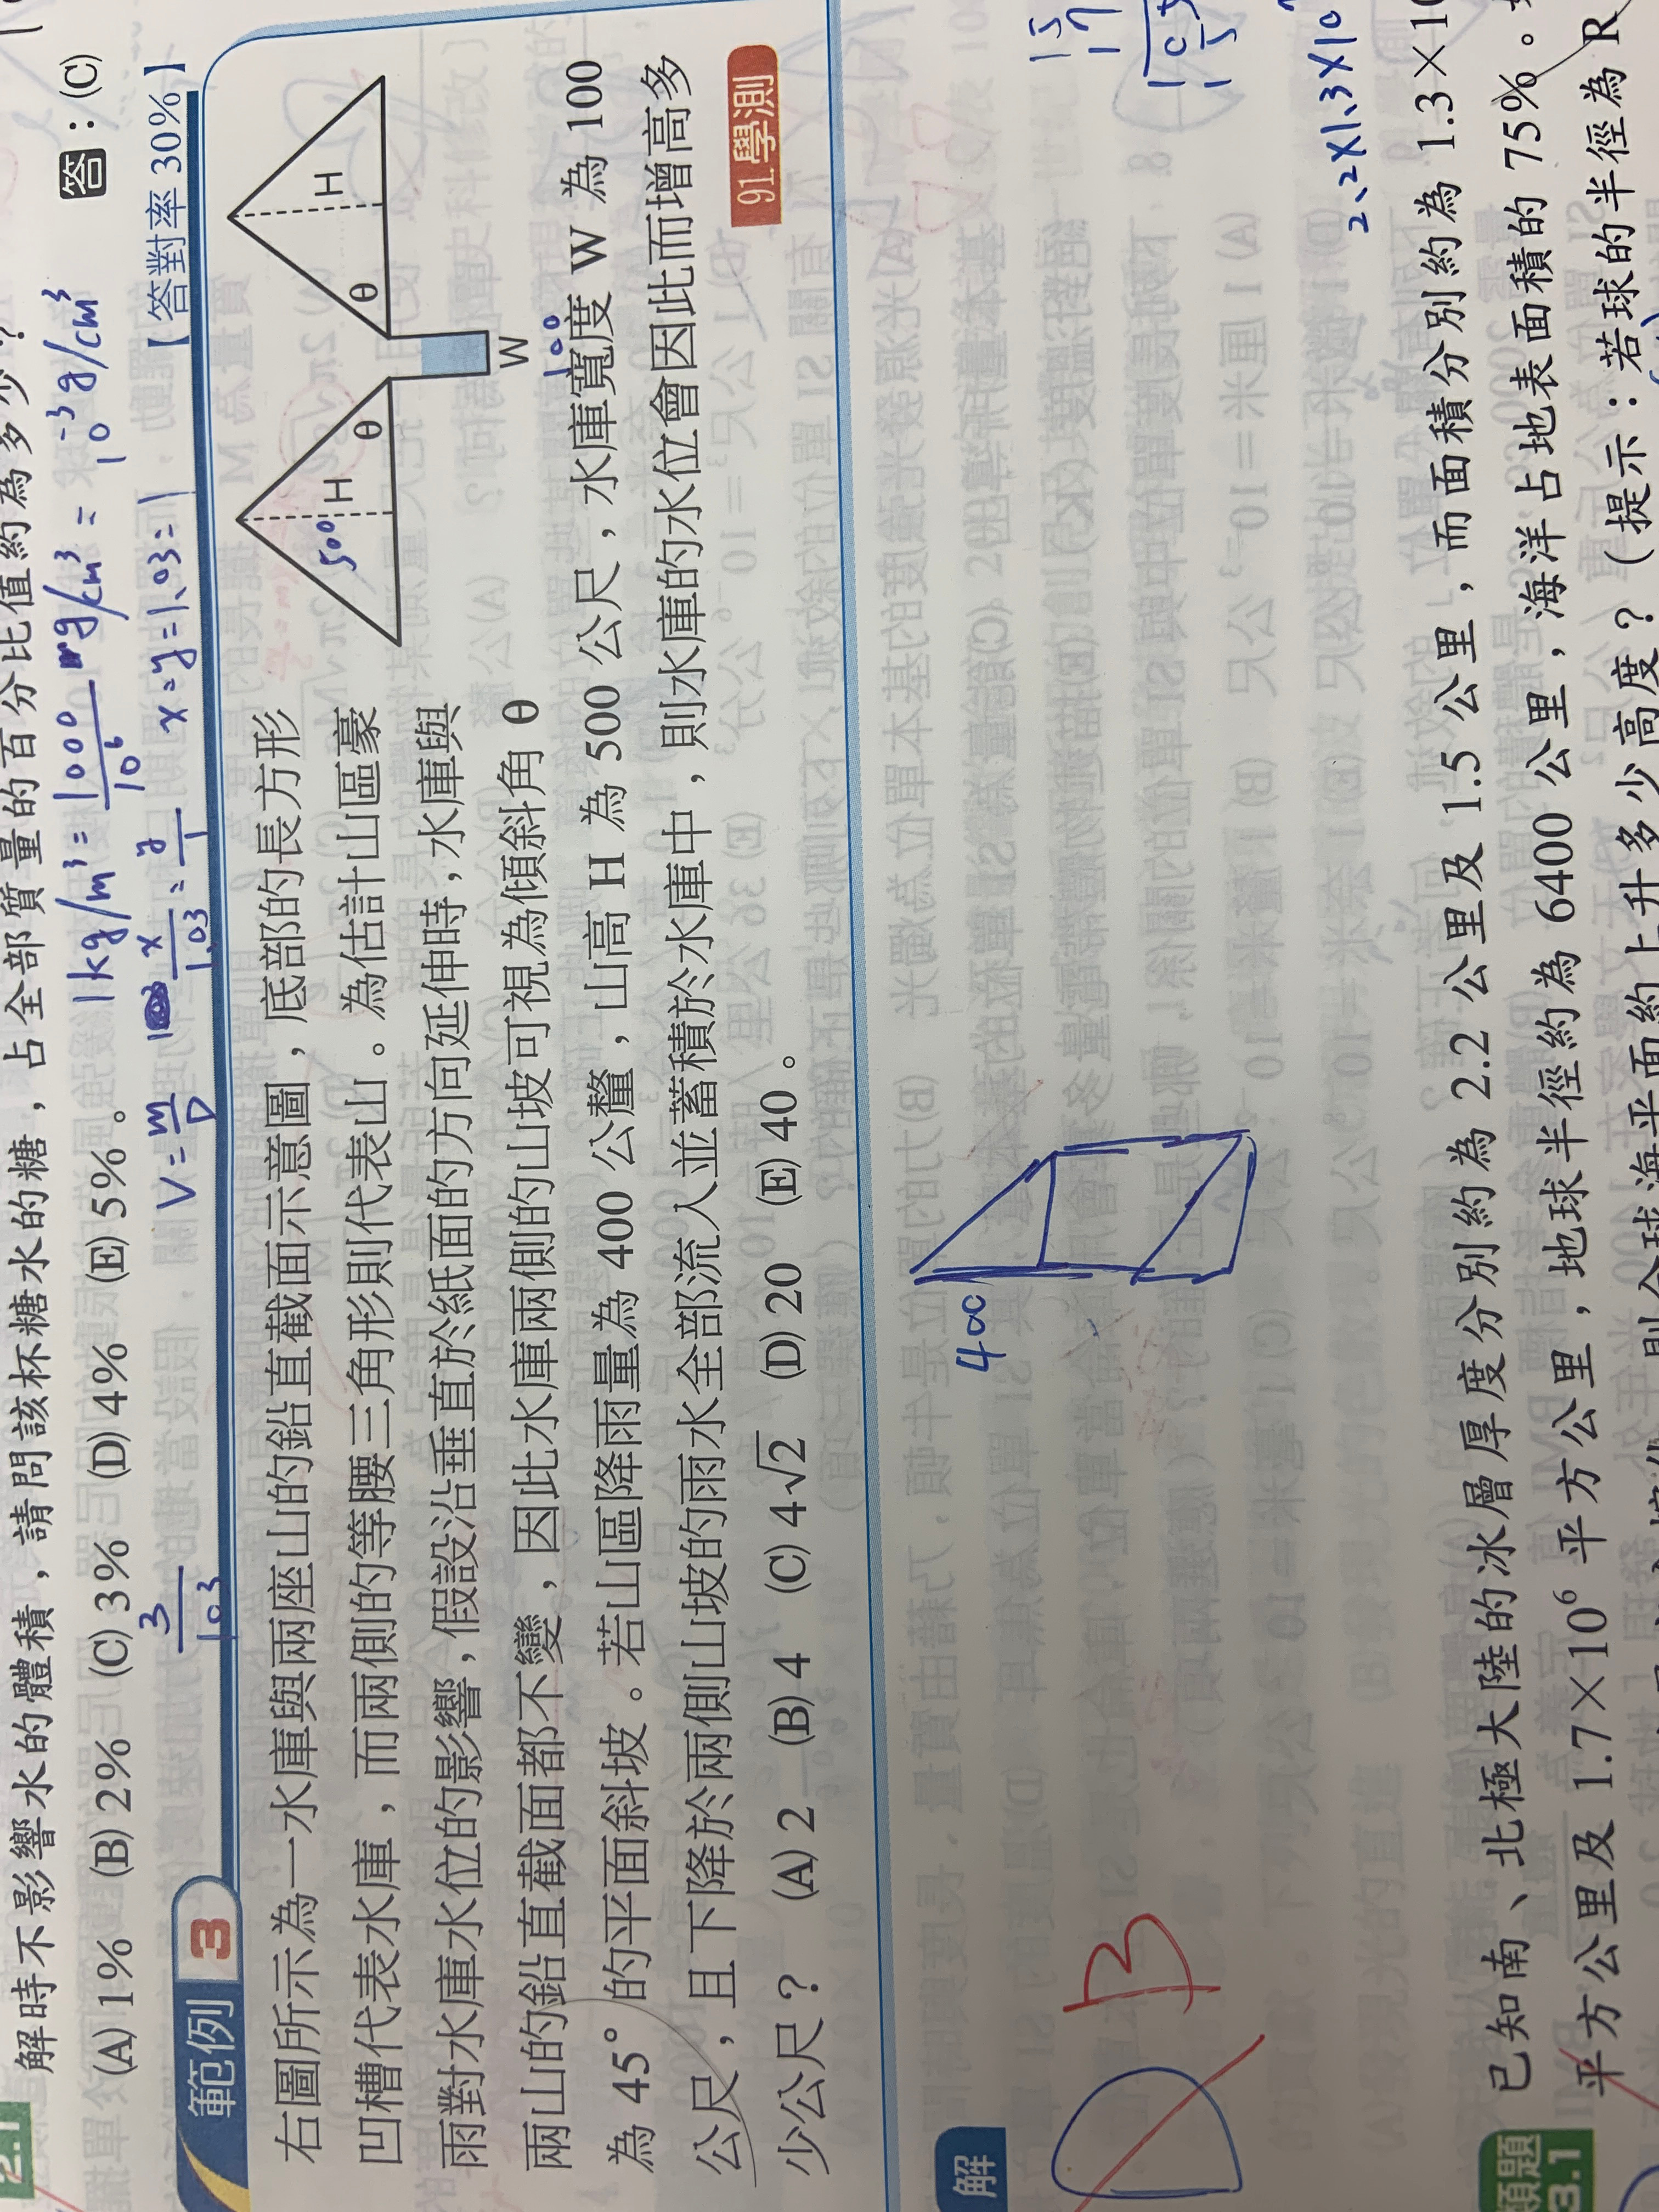 解時不影響水的體積，請問該杯糖水的糖，占全部質量的百分比值約為多少？
(A) 1% (B) 2% (C) 3% (D) 4% (E) 5%。
答：(C)
1kg/m³ = 1000/10⁶ g/cm³ = 10⁻³ g/cm³
3/103
V = m/D
x/1.03 = y/1
x = y = 1.03 = 1
【答對率 30%】
範例 3
右圖所示為一水庫與兩座山的鉛直截面示意圖，底部的長方形
凹槽代表水庫，而兩側的等腰三角形則代表山。為估計山區豪
雨對水庫水位的影響，假設沿垂直於紙面的方向延伸時，水庫與
兩山的鉛直截面都不變，因此水庫兩側的山坡可視為傾斜角 θ
為 45° 的平面斜坡。若山區降雨量為 400 公釐，山高 H 為 500 公尺，水庫寬度 W 為 100
公尺，且下降於兩側山坡的雨水全部流入並蓄積於水庫中，則水庫的水位會因此而增高多
少公尺？ (A) 2 (B) 4 (C) 4√2 (D) 20 (E) 40。
91.學測
H
θ
θ
H
W
500
100
解
D B
400
2.2×1.3×10
類題
3.1
已知南、北極大陸的冰層厚度分別約為 2.2 公里及 1.5 公里，而面積分別約為 1.3×10
平方公里及 1.7×10⁶ 平方公里，地球半徑約為 6400 公里，海洋占地表面積的 75%。
則全球海平面約上升多少高度？（提示：若球的半徑為 R